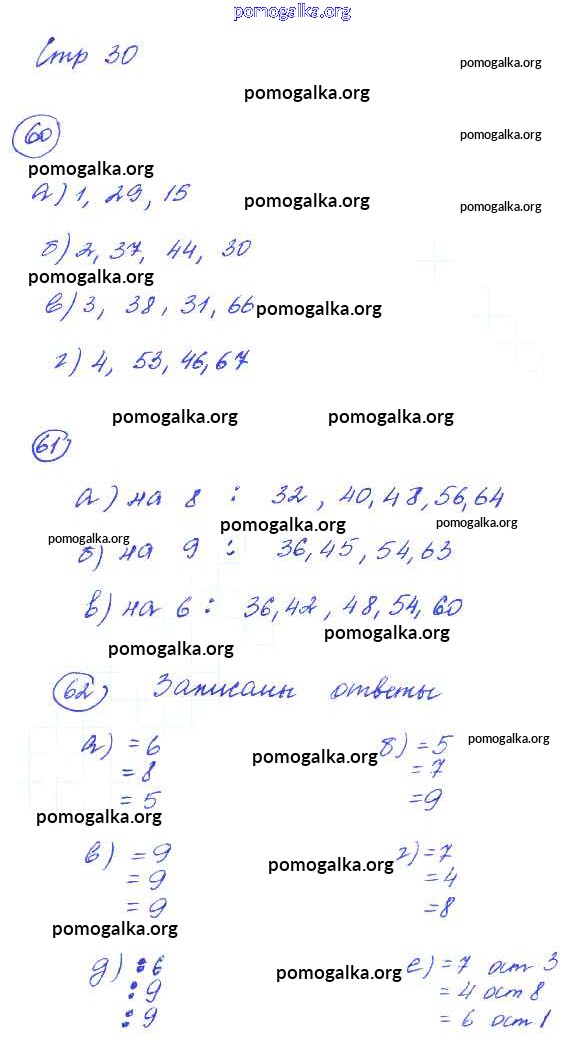 pomogalka.org
Стр 30
pomogalka.org
pomogalka.org
60
pomogalka.org
pomogalka.org
а) 1, 29, 15
pomogalka.org
pomogalka.org
б) 2, 37, 44, 30
pomogalka.org
в) 3, 38, 31, 66
pomogalka.org
г) 4, 53, 46, 67
pomogalka.org pomogalka.org
61
а) на 8 : 32, 40, 48, 56, 64
pomogalka.org pomogalka.org
pomogalka.org
б) на 9 : 36, 45, 54, 63
в) на 6 : 36, 42, 48, 54, 60
pomogalka.org
pomogalka.org
62) Записаны ответы
а) = 6 б) = 5
pomogalka.org
pomogalka.org
= 8 = 7
= 5 = 9
pomogalka.org
в) = 9 г) = 7
pomogalka.org
= 9 = 4
= 9 = 8
pomogalka.org
д) : 6 е) = 7 ост 3
pomogalka.org
: 9 = 4 ост 8
: 9 = 6 ост 1